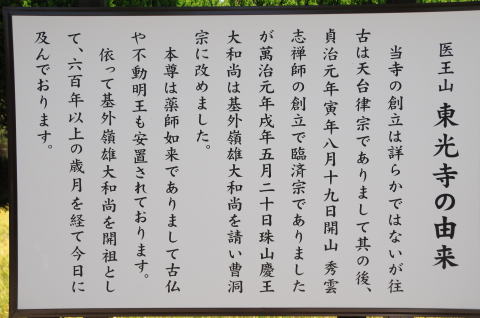 医王山 東光寺の由来
当寺の創立は詳らかではないが往
古は天台律宗でありまして其の後、
貞治元年寅年八月十九日開山 秀雲
志禅師の創立で臨済宗でありました
が萬治元年戌年五月二十日珠山慶王
大和尚は基外嶺雄大和尚を請い曹洞
宗に改めました。
本尊は薬師如来でありまして古仏
や不動明王も安置されております。
依って基外嶺雄大和尚を開祖とし
て、六百年以上の歳月を経て今日に
及んでおります。